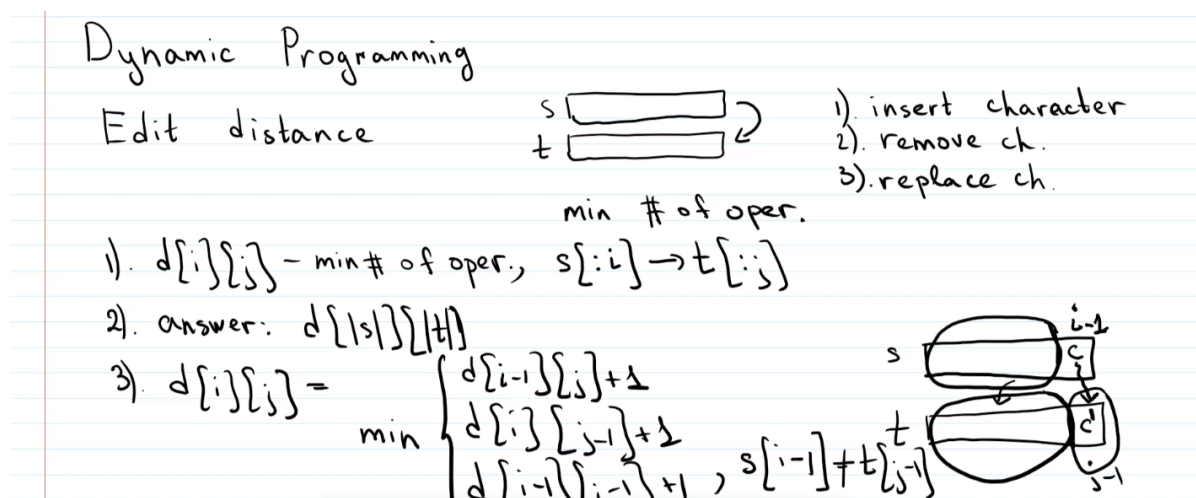 Dynamic Programming
Edit distance
s
t
1). insert character
2). remove ch.
3). replace ch.
min # of oper.
1). d[i][j] - min # of oper., s[:i] → t[:j]
2). answer: d[|s|][|t|]
3). d[i][j] =
min
d[i-1][j]+1
d[i][j-1]+1
d[i-1][j-1]+1, s[i-1]≠t[j-1]
s
i-1
c
t
c'
j-1